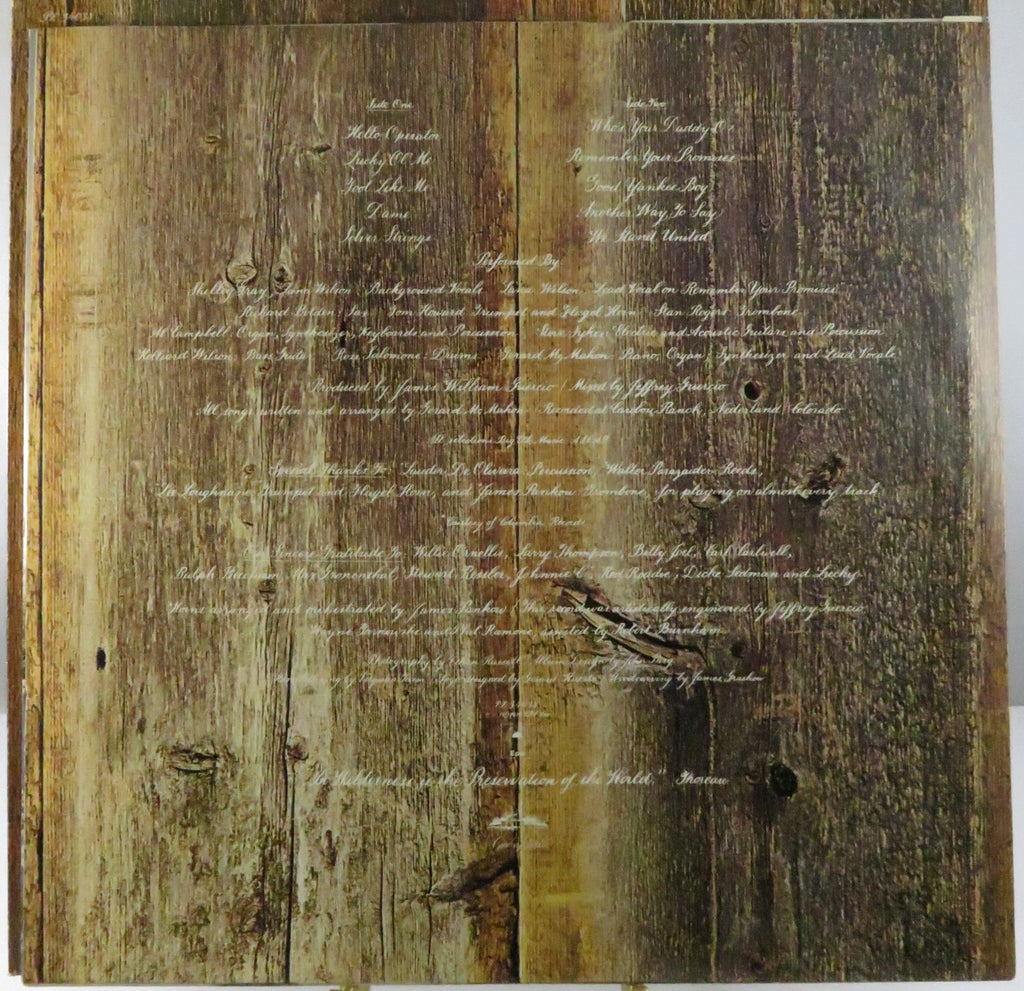 Side One
Hello Operator
Lucky Ol' Me
Fool Like Me
Dame
Silver Strings
Side Two
Who's Your Daddy O
Remember Your Promises
Good Yankee Boy
Another Way To Say
We Stand United
Performed By
Shelley Gray, Jana Wilson Background Vocals Luisa Wilson Lead Vocal on Remember Your Promises
Richard Sax Tom Howard Trumpet and Flugel Horn Stan Rogers Trombone
Al Campbell Organ, Synthesizer, Keyboards and Percussion Gene Electric and Acoustic Guitars and Percussion
Wilson Bass Ross Salomone Drums Gerard Mc Mahon Piano, Organ, Synthesizer and Lead Vocals
Produced by James William Guercio / Mixed by Jeffrey Guercio
All songs written and arranged by Gerard Mc Mahon Recorded at Caribou Ranch, Nederland Colorado
All selections Big Elk Music ASCAP
Special Thanks To Laudir De Oliveira Percussion, Walter Parazaider Reeds,
Lee Loughnane Trumpet and Flugel Horn, and James Pankow Trombone, for playing on almost every track
Courtesy of Columbia Records
Our Sincere Gratitude To Willie Ornellis, Larry Thompson, Billy Joel, Carl
Max Gronenthal, Stewart Johnnie Red Roadie, Dicke Sidman and Lucky
Horns arranged and orchestrated by James Pankow / This record was artistically engineered by Jeffrey Guercio
Wayne and Phil Ramone, assisted by Robert Burnham
Photography by Album Design by John
by Logo designed by Gerard Woodcarving by James
Epic
"In Wilderness is the Preservation of the World." Thoreau